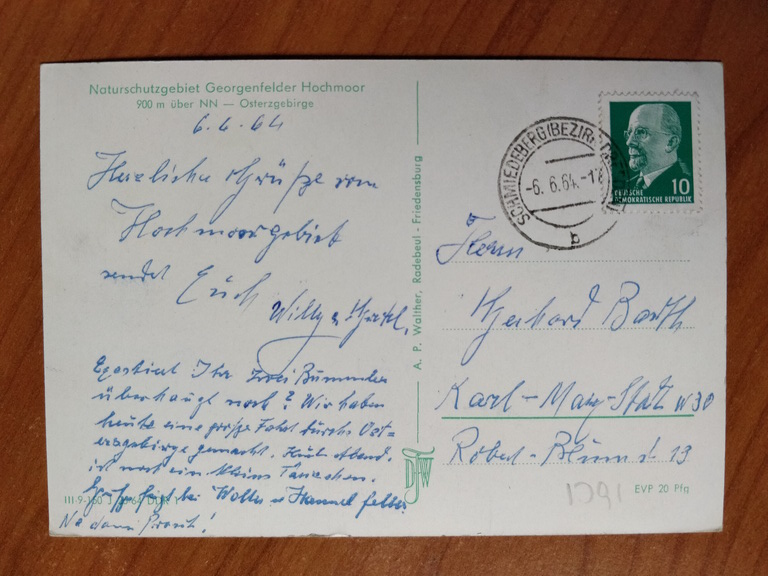 Naturschutzgebiet Georgenfelder Hochmoor
900 m über NN — Osterzgebirge
6.6.64
Herzliche Grüße vom
Hochmoorgebiet
sendet Euch
Willy u.
Existiert Ihr zwei Bummler
überhaupt noch? Wir haben
heute eine große Fahrt durchs Ost=
erzgebirge gemacht. Heute Abend
ist noch ein kleines Tänzchen.
Na dann Prosit!
III-9-160
A. P. Walther, Radebeul - Friedensburg
SCHMIEDEBERG (BEZIR
-6. 6.64.-17
b
10
DEUTSCHE
DEMOKRATISCHE REPUBLIK
Herrn
Gerhard Barth
Karl-Marx-Stadt W30
Robert-Blum 13
1091
EVP 20 Pfg